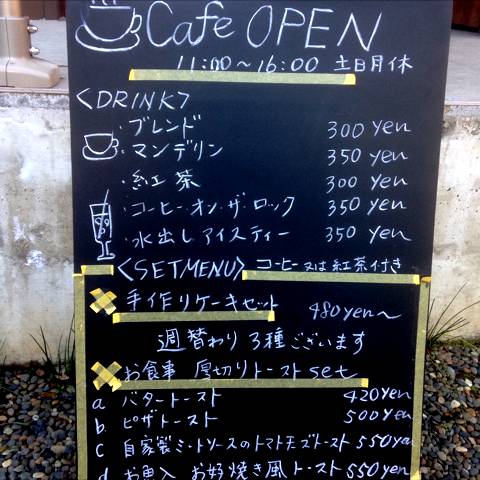 Cafe OPEN
11:00～16:00 土日月休
<DRINK>
・ブレンド 300 yen
・マンデリン 350 yen
・紅茶 300 yen
・コーヒー・オン・ザ・ロック 350 yen
・水出しアイスティー 350 yen
<SETMENU> コーヒー又は紅茶付き
手作りケーキセット 480yen～
週替わり3種ございます
お食事 厚切りトーストset
a バタートースト 420yen
b ピザトースト 500yen
c 自家製ミートソースのトマト天ゴトースト 550yen
d お魚入 お好焼き風トースト 550yen